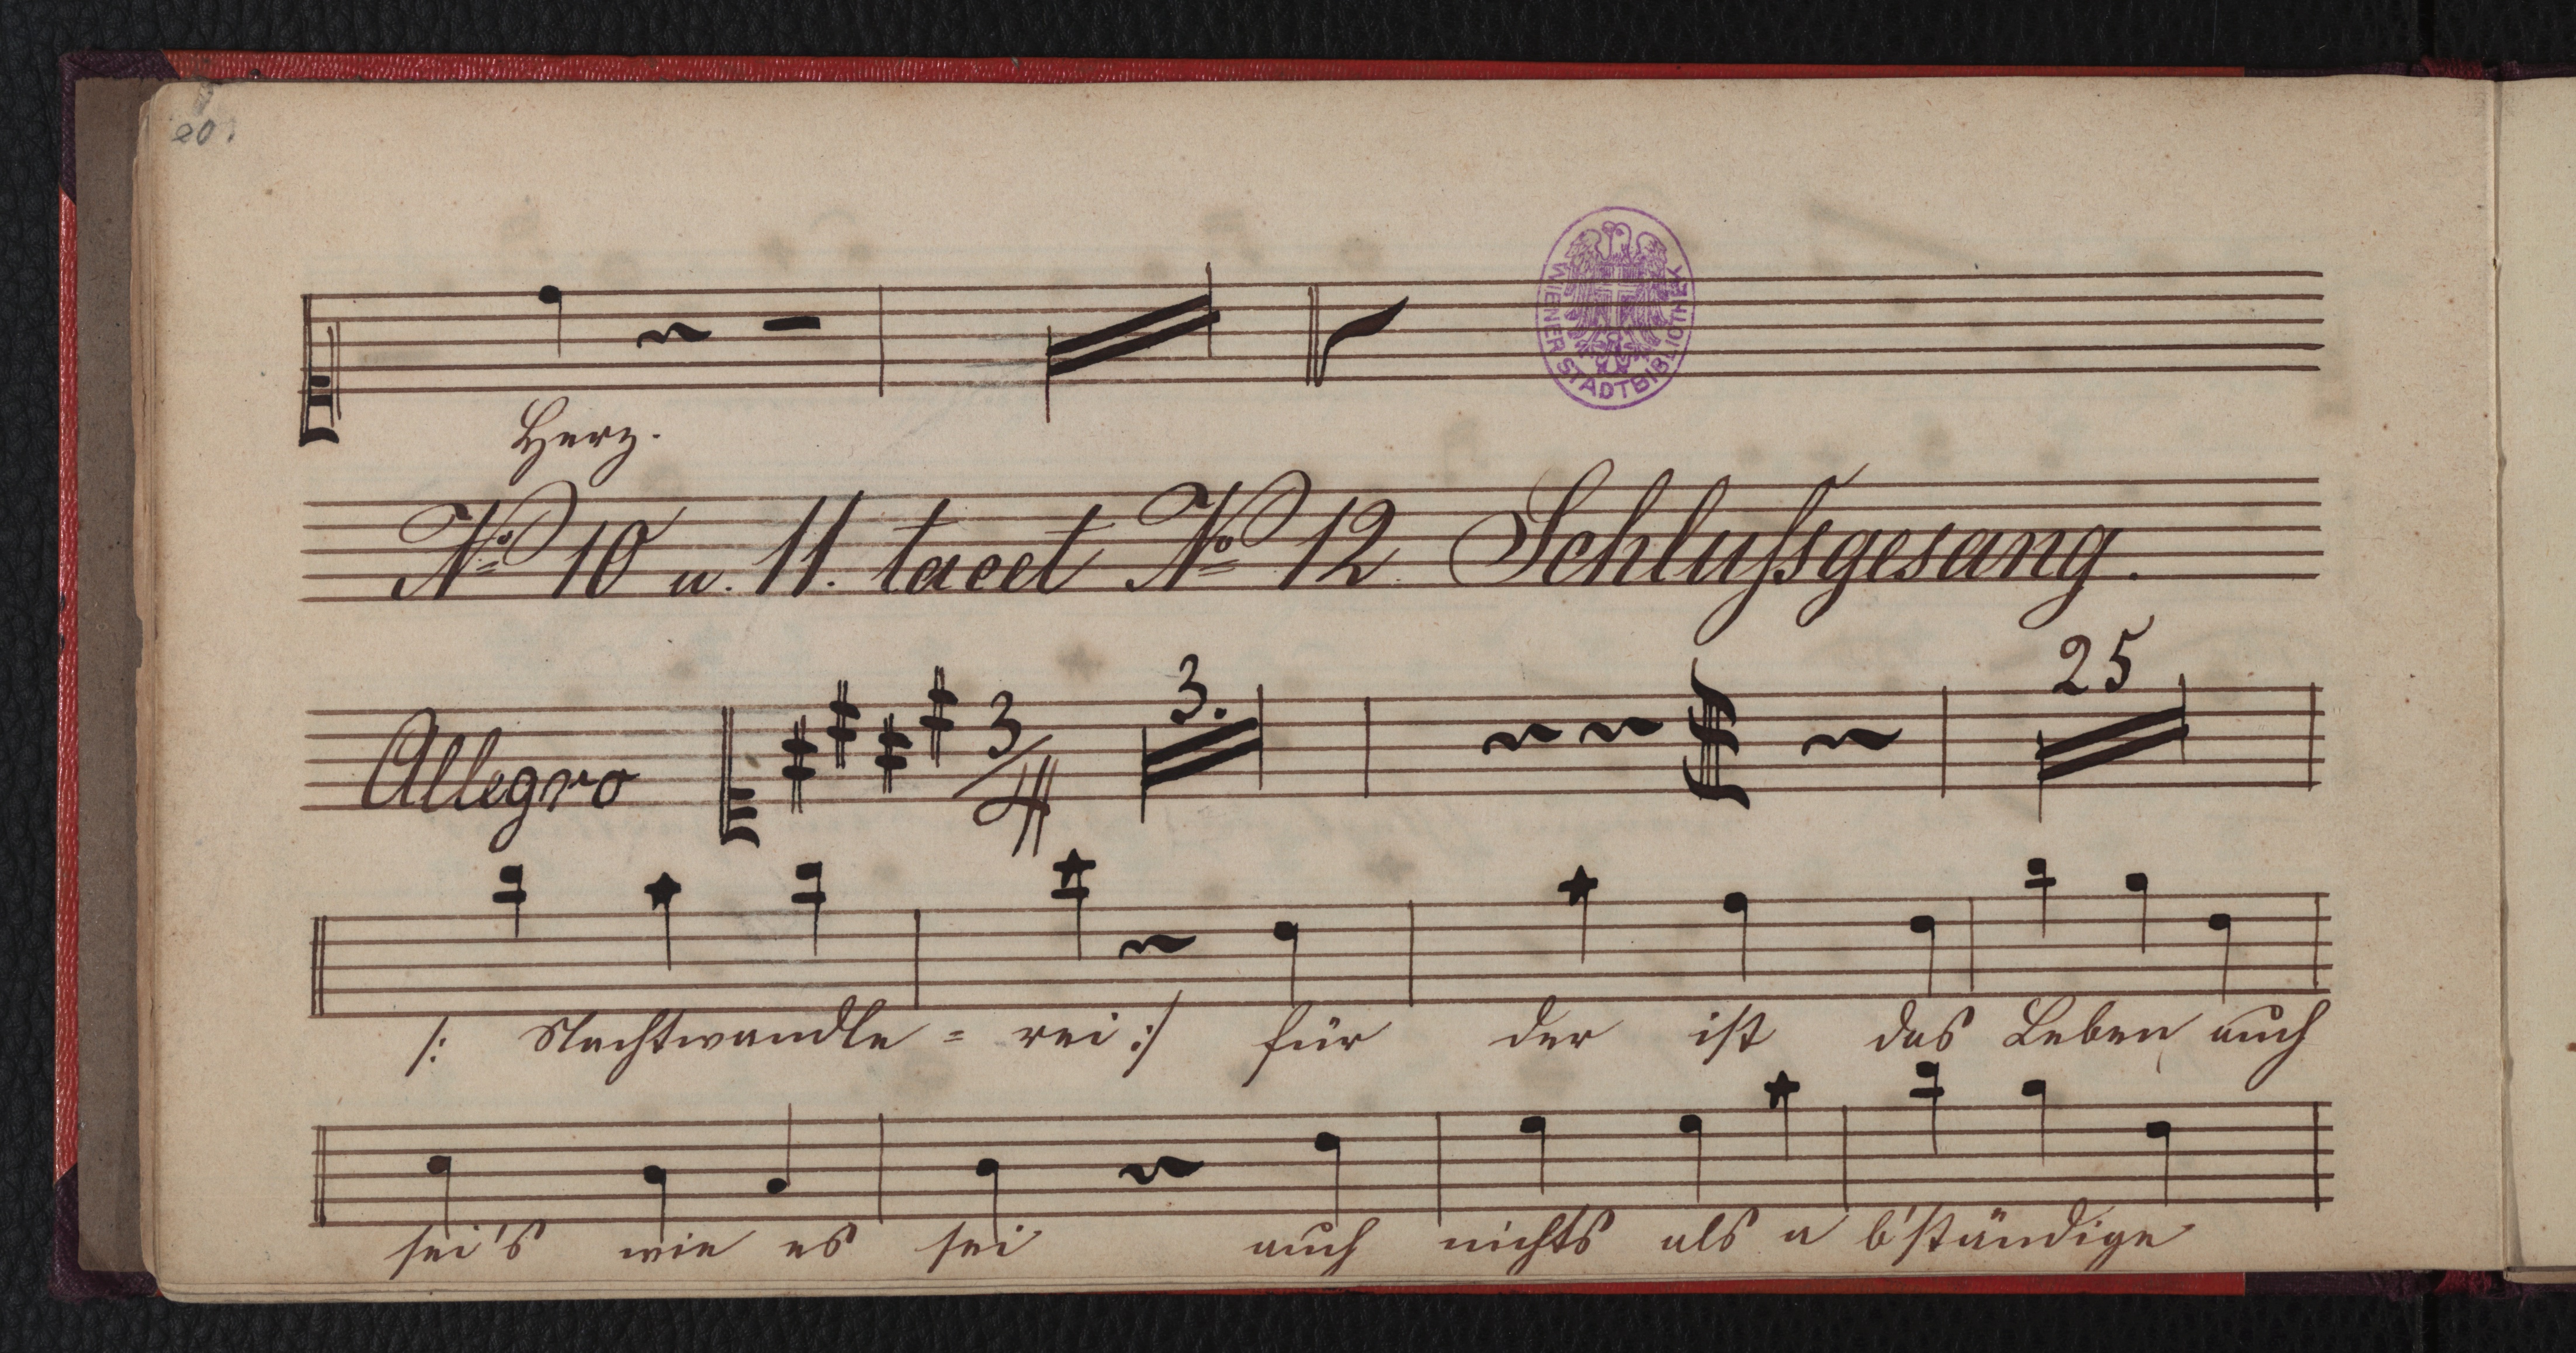 20.
WIENER STADTBIBLIOTHEK
Herz.
No 10 u. 11. tacet No 12. Schlußgesang.
Allegro 3/4 3. 25
/: Nachtwandle = rei :/ für der ist das Leben auch
sei's wie es sei auch nichts als a b'ständige